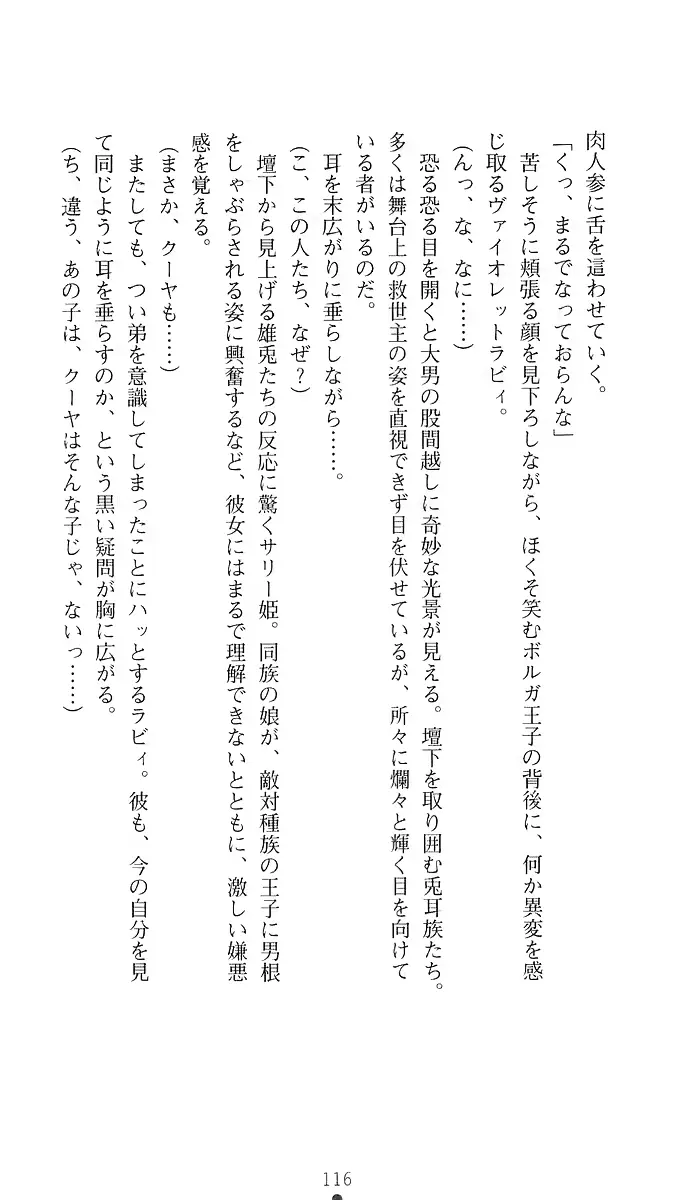 肉人参に舌を這わせていく。
「くっ、まるでなっておらんな」
苦しそうに頬張る顔を見下ろしながら、ほくそ笑むボルガ王子の背後に、何か異変を感
じ取るヴァイオレットラビィ。
(んっ、な、なに……)
恐る恐る目を開くと大男の股間越しに奇妙な光景が見える。壇下を取り囲む兎耳族たち。
多くは舞台上の救世主の姿を直視できず目を伏せているが、所々に爛々と輝く目を向けて
いる者がいるのだ。
耳を末広がりに垂らしながら……。
(こ、この人たち、なぜ?)
壇下から見上げる雄兎たちの反応に驚くサリー姫。同族の娘が、敵対種族の王子に男根
をしゃぶらされる姿に興奮するなど、彼女にはまるで理解できないとともに、激しい嫌悪
感を覚える。
(まさか、クーヤも……)
またしても、つい弟を意識してしまったことにハッとするラビィ。彼も、今の自分を見
て同じように耳を垂らすのか、という黒い疑問が胸に広がる。
(ち、違う、あの子は、クーヤはそんな子じゃ、ないっ……)
116